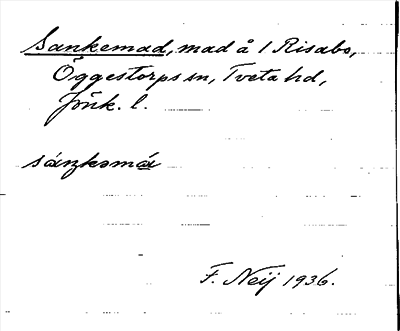 Sankemad, mad å 1 Risabo,
Öggestorps sn, Tveta hd,
Jönk. l.
sáŋkəmá
F. Neij 1936.